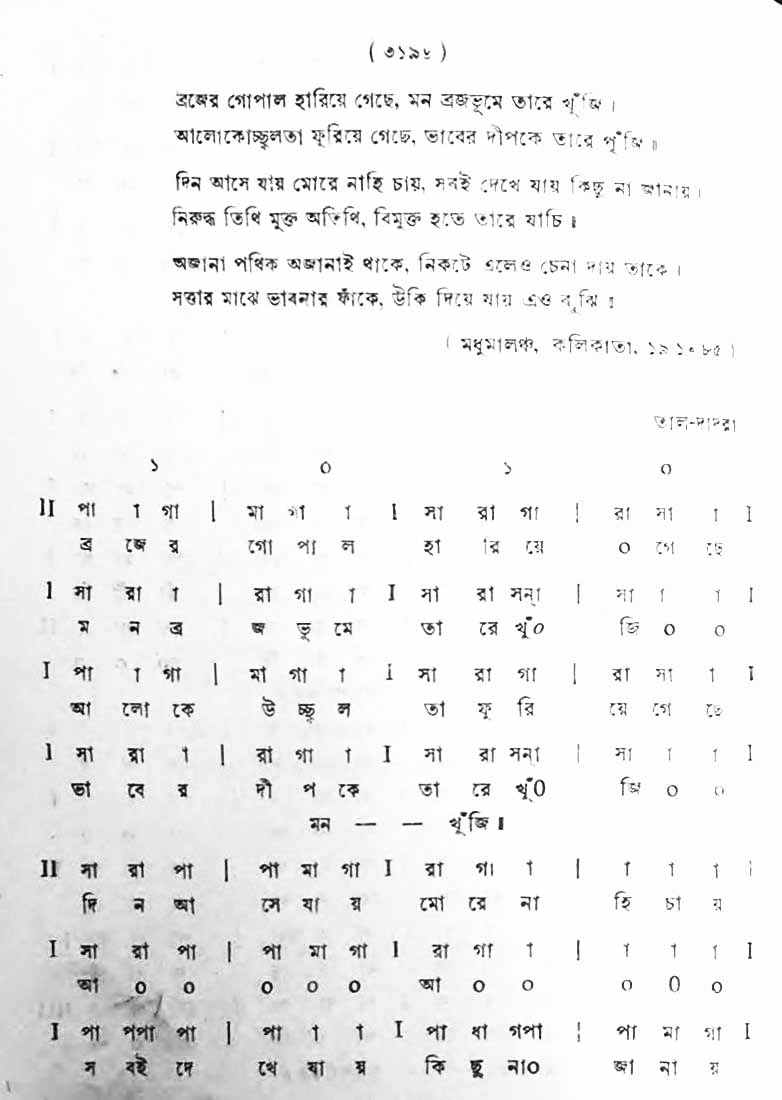 ( ৩১৯৮ )
ব্রজের গোপাল হারিয়ে গেছে, মন ব্রজভূমে তারে খুঁজি ।
আলোকোচ্ছ্বলতা ফুরিয়ে গেছে, ভাবের দীপকে তারে পুঁজি ॥
দিন আসে যায় মোরে নাহি চায়, সবই দেখে যায় কিছু না জানায় ।
নিরুদ্ধ তিথি মুক্ত অতিথি, বিমুক্ত হতে তারে যাচি ॥
অজানা পথিক অজানাই থাকে, নিকটে এলেও চেনা দায় তাকে ।
সত্তার মাঝে ভাবনার ফাঁকে, উকি দিয়ে যায় এও বুঝি ॥
( মধুমালঞ্চ, কলিকাতা, ১৯ ১০ ৮৫ )
তাল-দাদরা
১ ০ ১ ০
II পা া গা | মা গা া I সা রা গা | রা সা া I
ব্র জে র গো পা ল হা রি য়ে ০ গে ছে
I সা রা া | রা গা া I সা রা সনা্ | সা া া I
ম ন ব্র জ ভূ মে তা রে খুঁ০ জি ০ ০
I পা া গা | মা গা া I সা রা গা | রা সা া I
আ লো কে উ চ্ছ্ব ল তা ফু রি য়ে গে ছে
I সা রা া | রা গা া I সা রা সনা্ | সা া া I
ভা বে র দী প কে তা রে খুঁ০ জি ০ ০
মন — — খুঁজি ॥
II সা রা পা | পা মা গা I রা গা া | া া া I
দি ন আ সে যা য় মো রে না হি চা য়
I সা রা পা | পা মা গা I রা গা া | া া া I
আ ০ ০ ০ ০ ০ আ ০ ০ ০ ০ ০
I পা পপা পা | পা া া I পা ধা গপা | পা মা গা I
স বই দে খে যা য় কি ছু না০ জা না য়